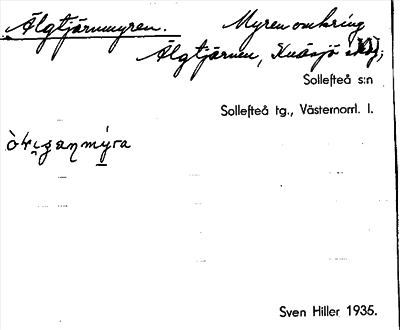 Älgtjärnmyren. Myren omkring
Älgtjärnen, Knäsjö
Sollefteå s:n
Sollefteå tg., Västernorrl. l.
Sven Hiller 1935.